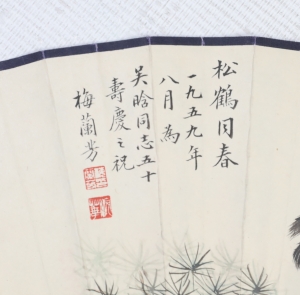 松鶴同春
一九五九年
八月為
吴晗同志五十
壽慶之祝
梅蘭芳